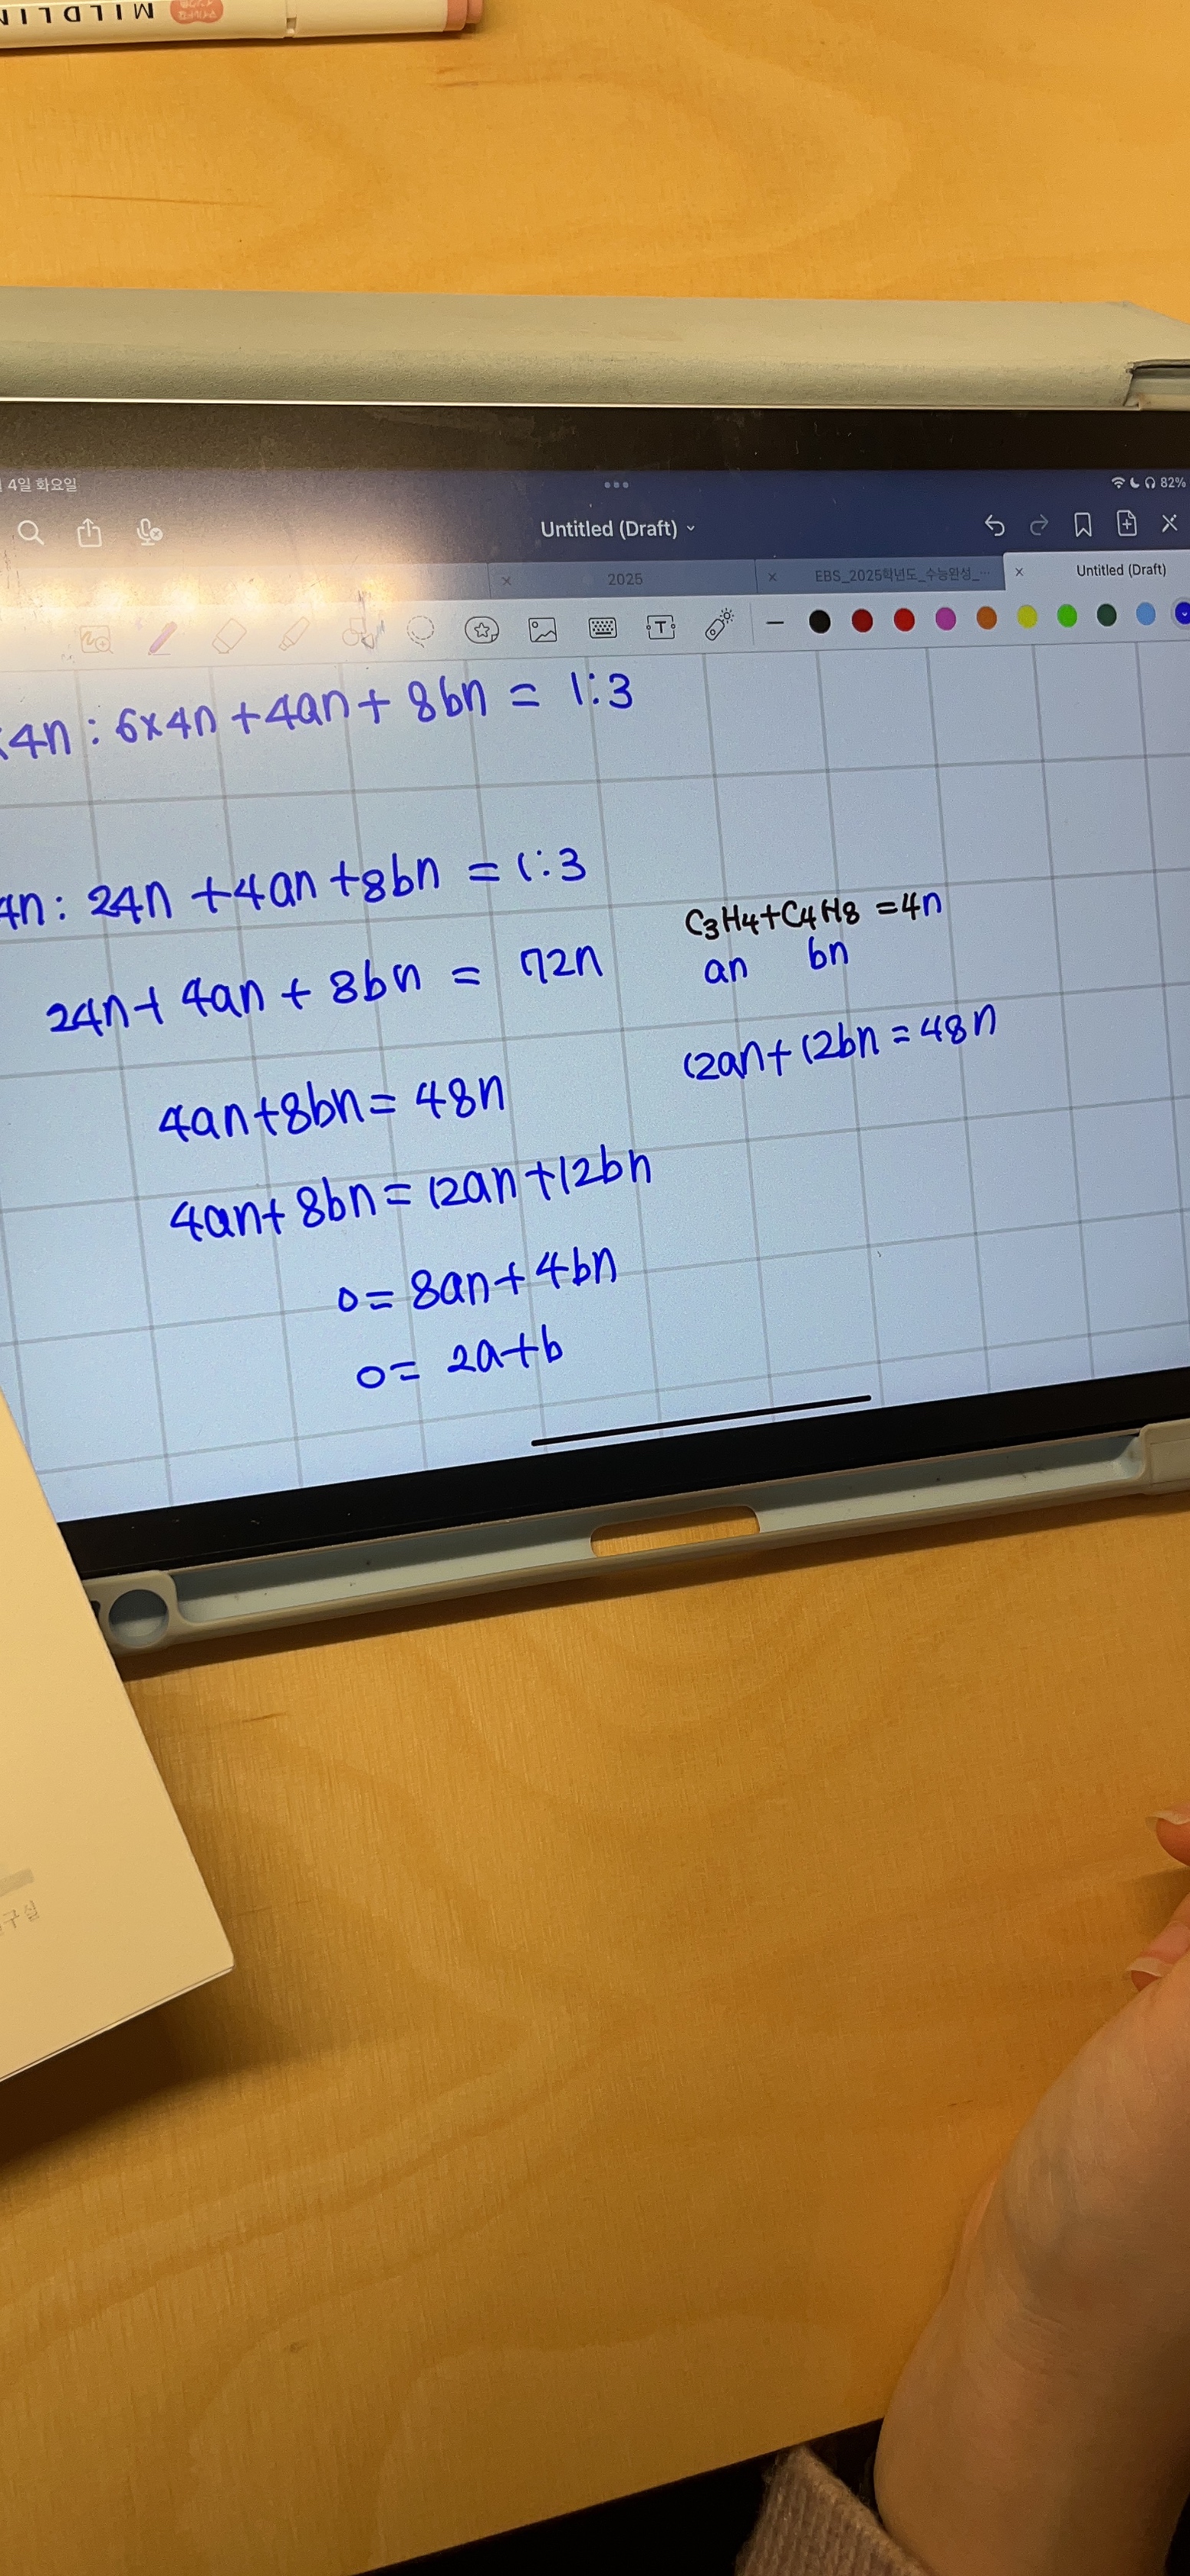 MILDLIN
4일 화요일
82%
Untitled (Draft)
2025
EBS_2025학년도_수능완성_…
Untitled (Draft)
4n : 6×4n+4an+8bn = 1:3
4n : 24n+4an+8bn = 1:3
C3H4+C4H8 =4n
an bn
24n+4an+8bn = 72n
12an+12bn=48n
4an+8bn=48n
4an+8bn=12an+12bn
0=8an+4bn
0= 2a+b
구실